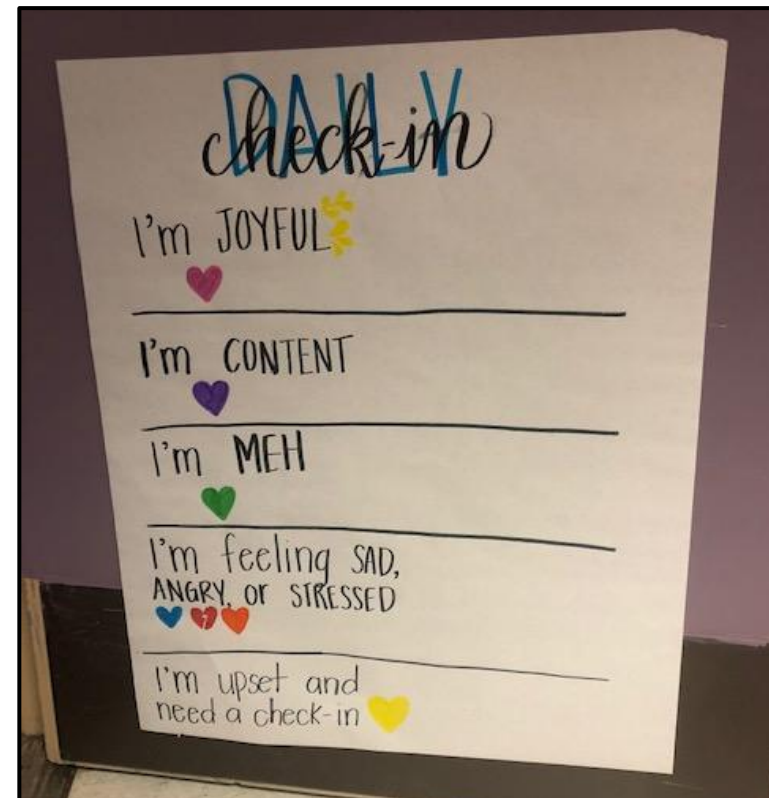 DAILY
check-in
I'm JOYFUL
I'm CONTENT
I'm MEH
I'm feeling SAD,
ANGRY, or STRESSED
I'm upset and
need a check-in